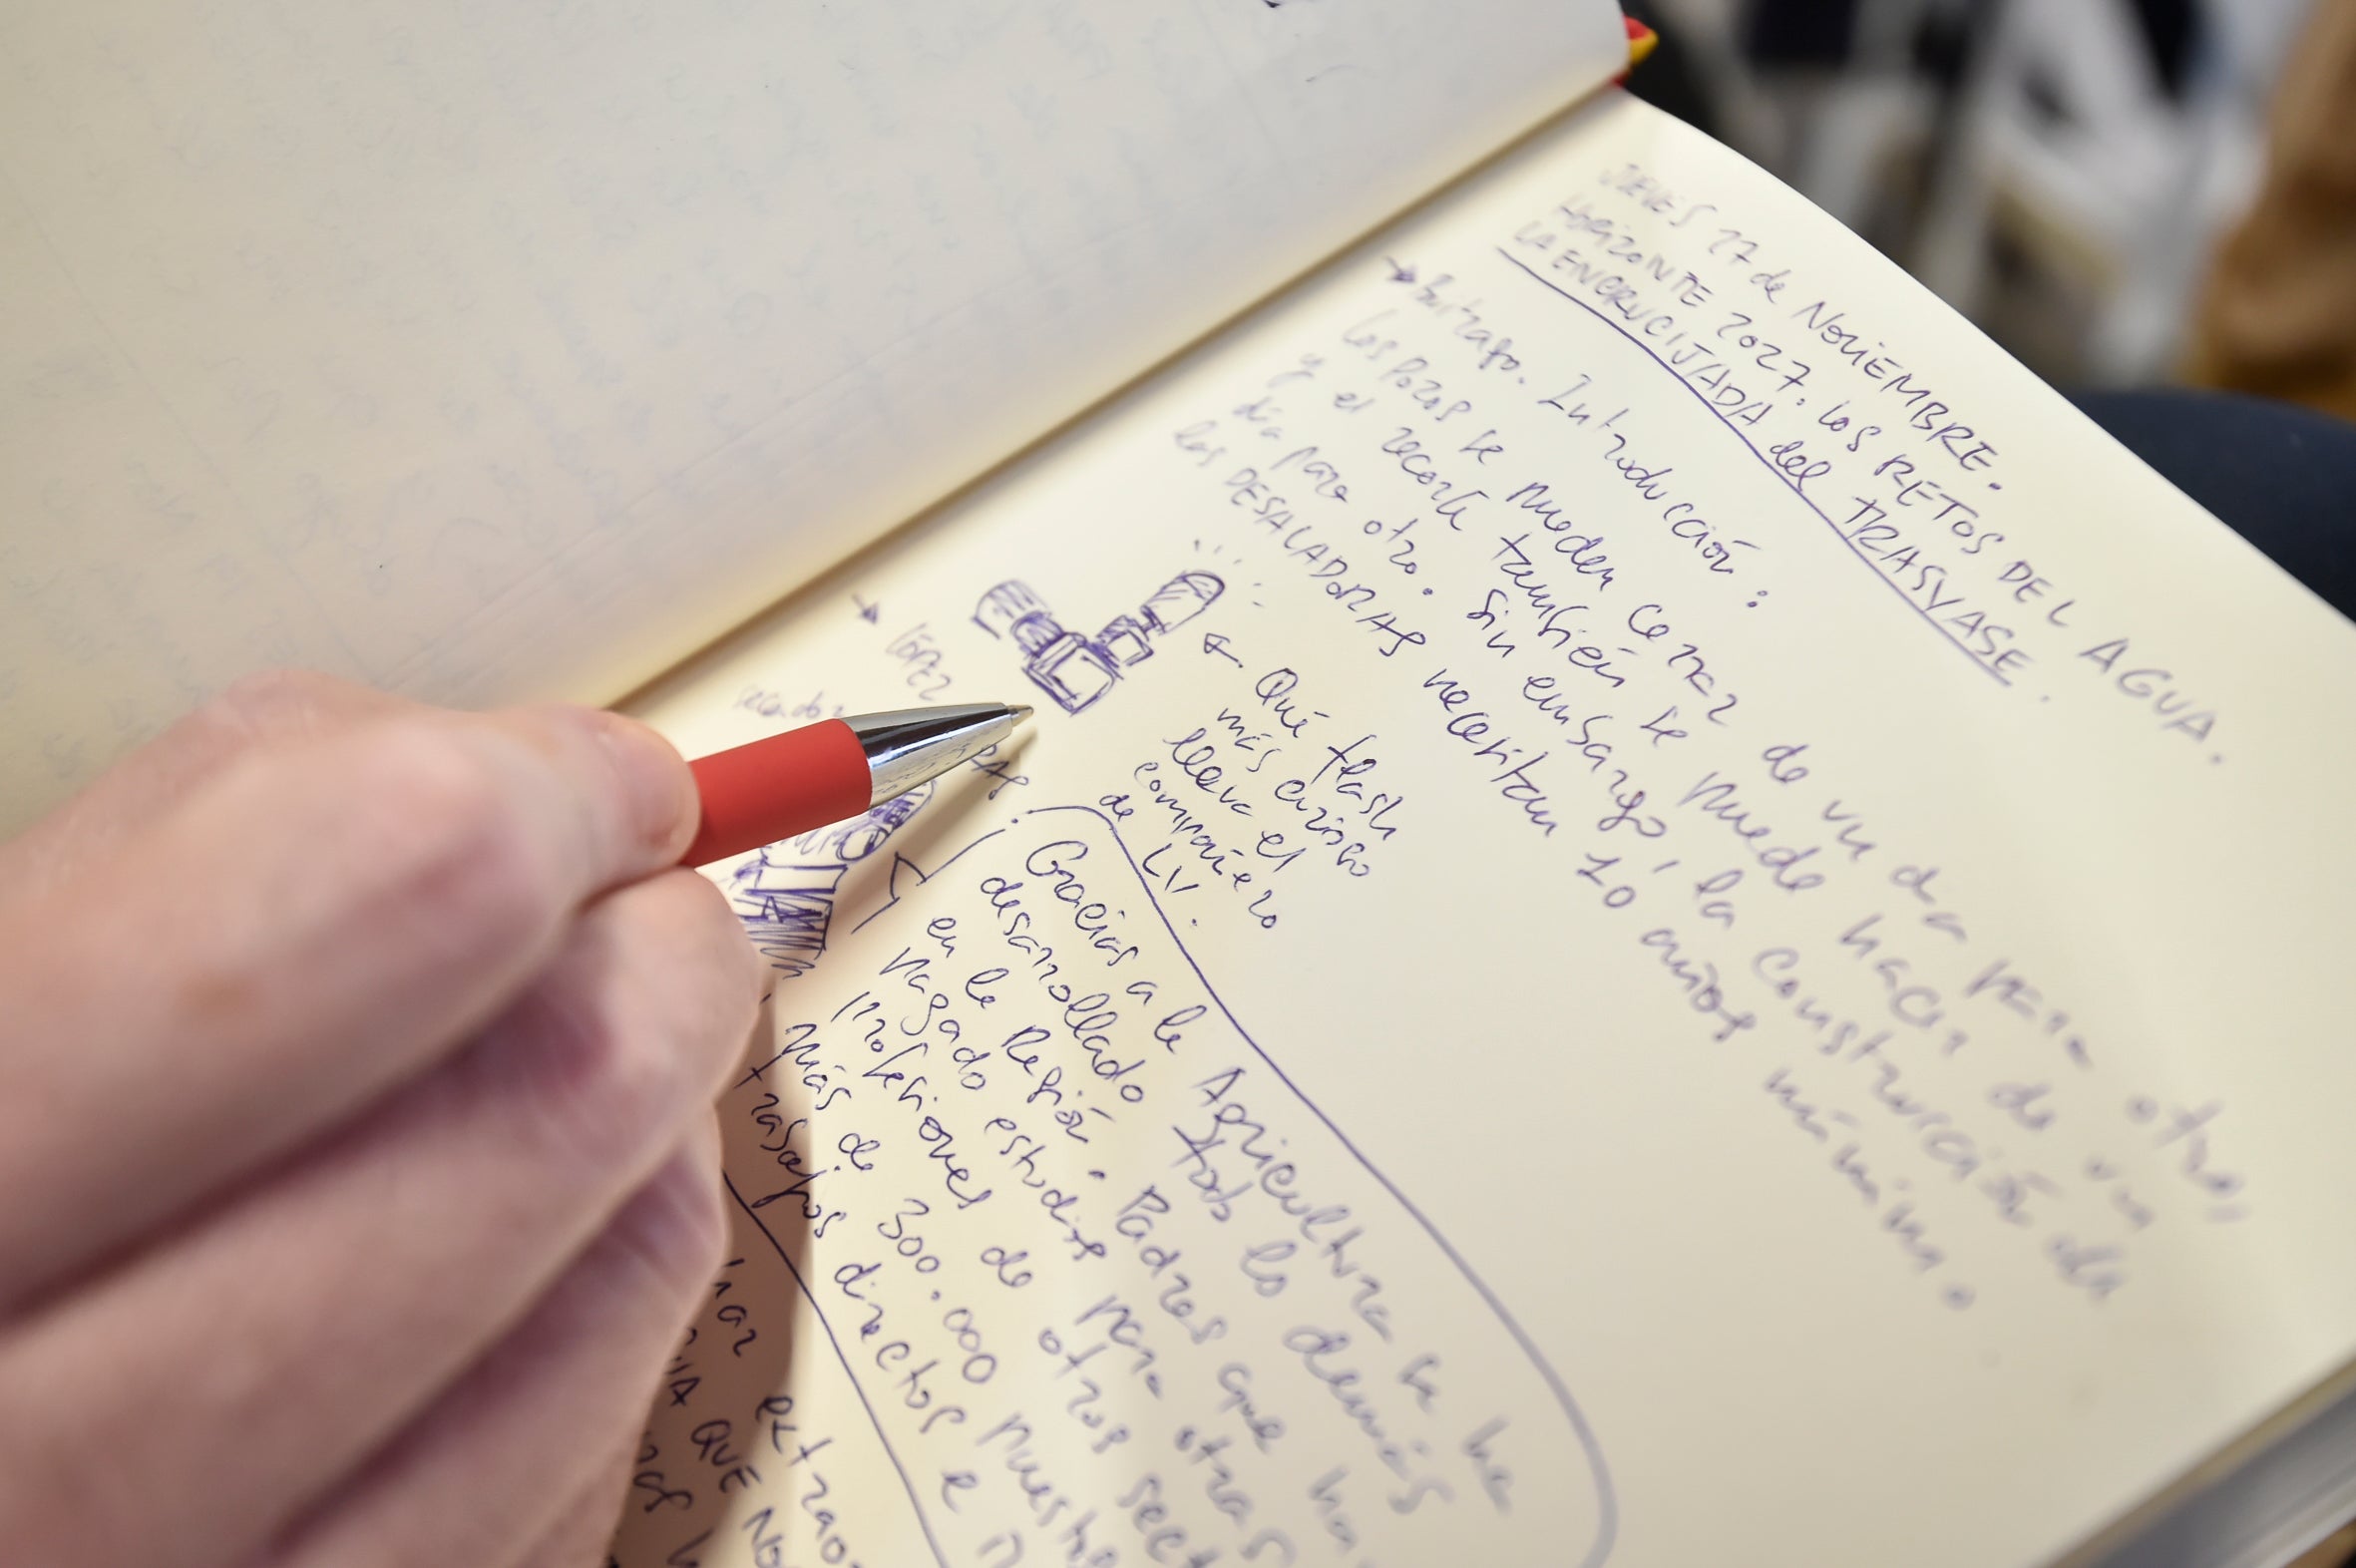 JUEVES 27 de NOVIEMBRE.
HORIZONTE 2027. LOS RETOS DEL AGUA.
LA ENCRUCIJADA del TRASVASE.
→ Buitrago. Introducción:
Los pozos se pueden cerrar de un día para otro,
y el recorte también se puede hacer de un
día para otro. Sin embargo, la construcción de
las DESALADORAS necesitan 10 años mínimo.
← Qué flash
más curioso
lleva el
compañero
de LV.
→ LÓPEZ
Gracias a la Agricultura se ha
desarrollado todo lo demás
en la Región. Padres que han
pagado estudios para otras
profesiones de otros
más de 300.000
trabajos directos e
QUE NO